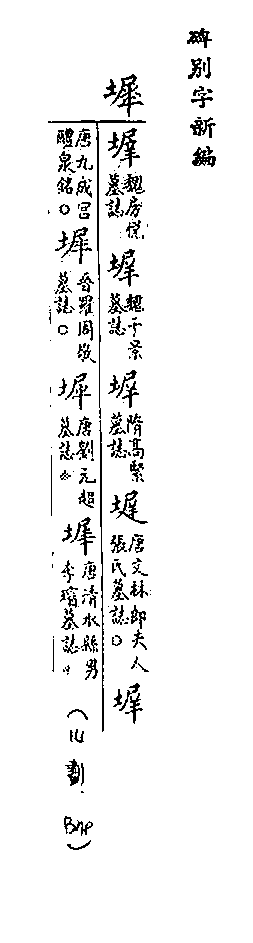 碑別字新編
墀
墀 魏房悦墓誌 墀 魏于景墓誌 墀 隋高緊墓誌 墀 唐文林郎夫人張氏墓誌 墀
唐九成宮醴泉銘 墀 晉羅周敬墓誌 墀 唐劉元超墓誌 墀 唐清水縣男李璸墓誌